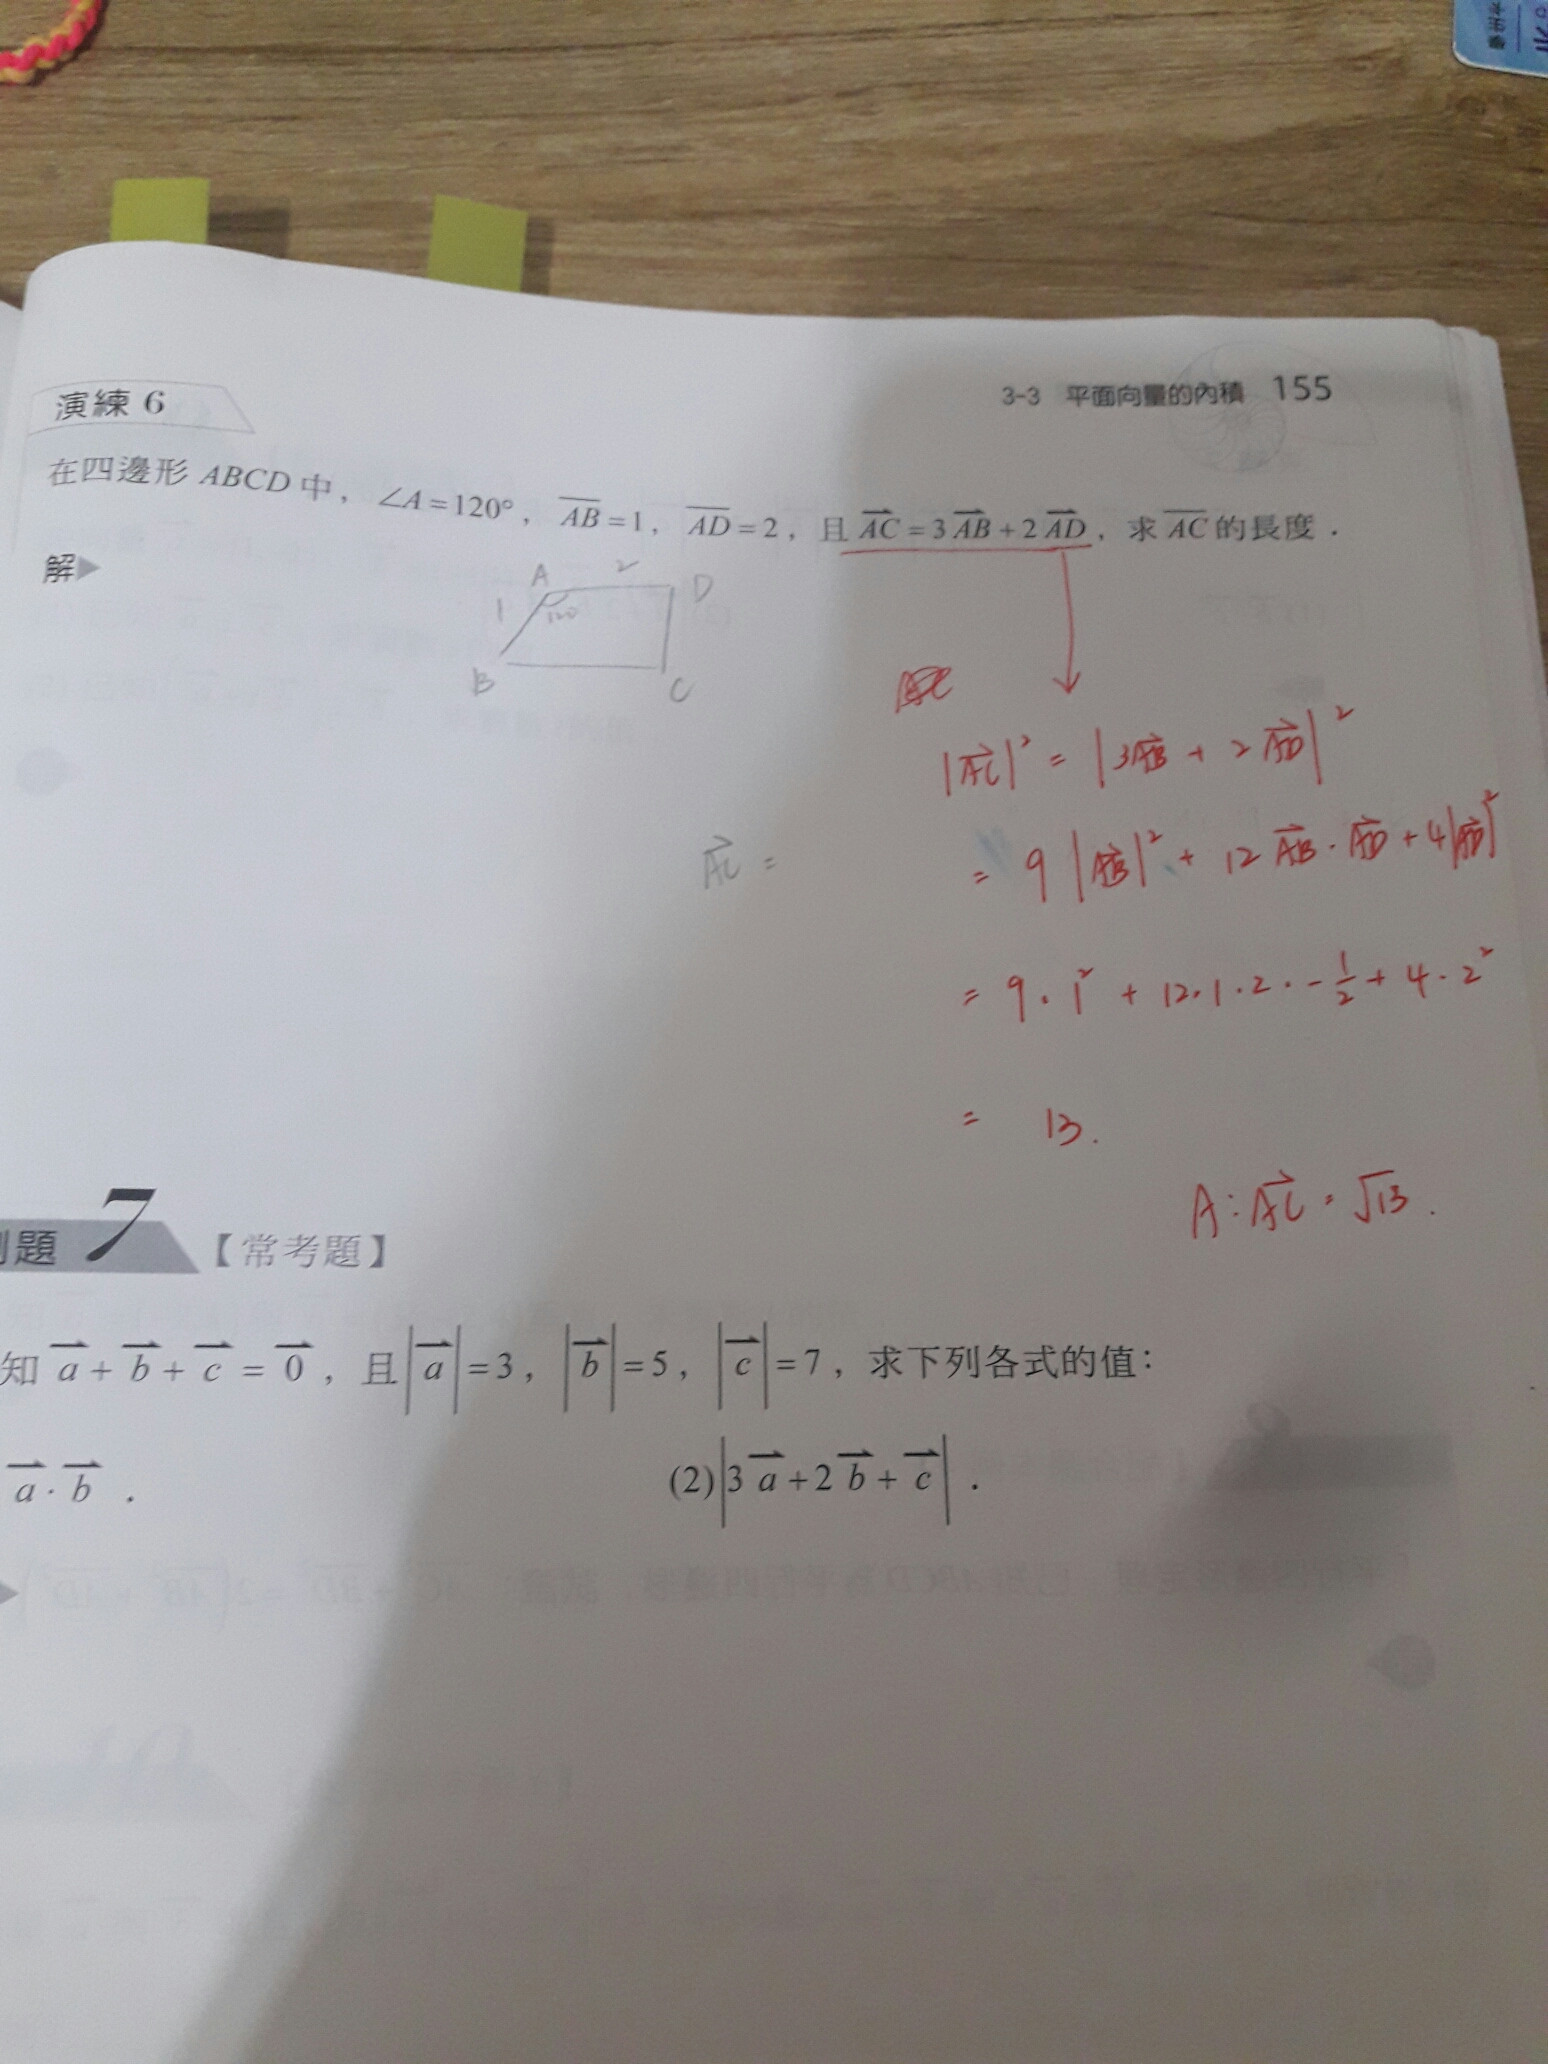 3-3 平面向量的內積 155
演練 6
在四邊形 ABCD 中，∠A=120°，AB=1，AD=2，且 AC=3AB+2AD，求 AC 的長度．
解
A 2 D
1 120
B C
|AC|² = |3AB + 2AD|²
AC =
= 9|AB|² + 12AB·AD + 4|AD|²
= 9·1² + 12·1·2·-1/2 + 4·2²
= 13.
A: AC = √13.
題 7 【常考題】
知 a + b + c = 0，且|a|=3，|b|=5，|c|=7，求下列各式的值：
a·b． (2)|3a+2b+c|．